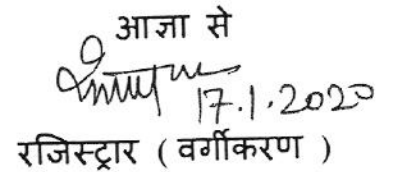 आज्ञा से
17.1.2020
रजिस्ट्रार ( वर्गीकरण )